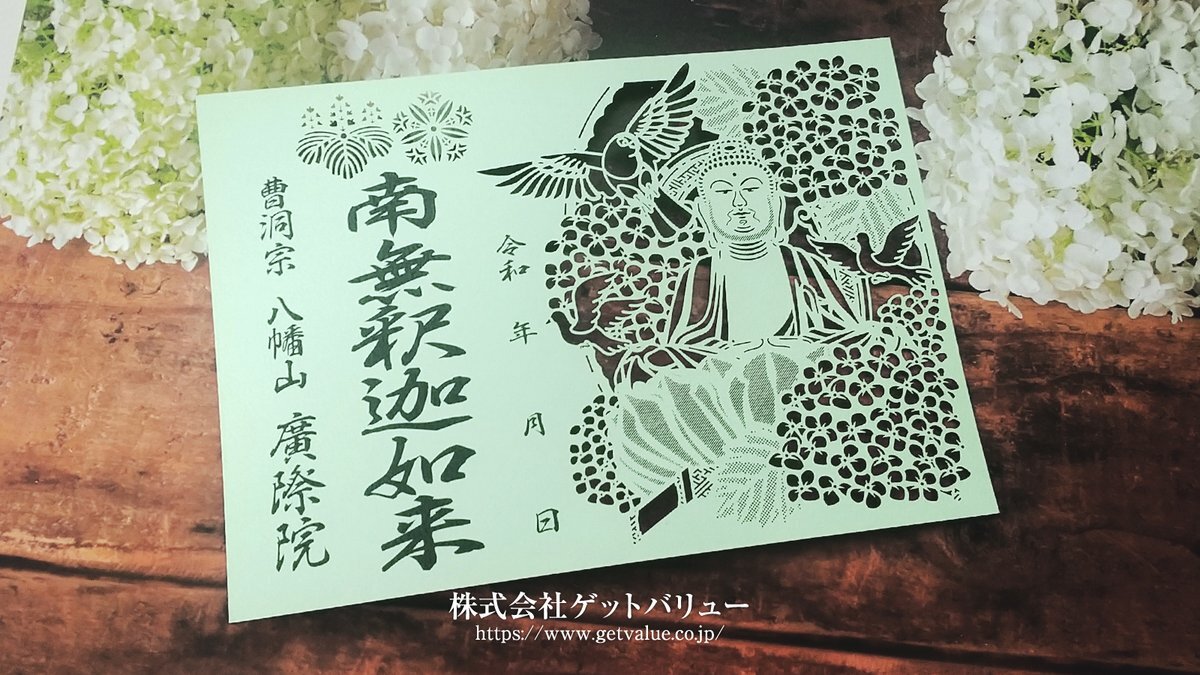 令和 年 月 日
南無釈迦如来
曹洞宗 八幡山 廣際院
株式会社ゲットバリュー
https://www.getvalue.co.jp/